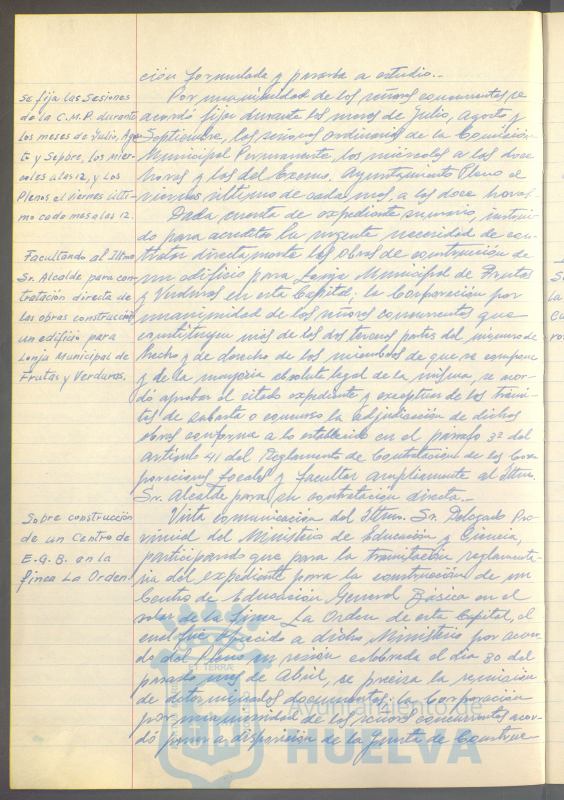 ción formulada y pasarla a estudio.-
Se fija las Sesiones
de la C.M.P. durante
los meses de Julio, Agos-
to y Sepbre, los miér-
coles a las 12, y los
Plenos el viernes últi-
mo cada mes a las 12.
Por unanimidad de los señores concurrentes se
acordó fijar durante los meses de Julio, Agosto y
Septiembre, las sesiones ordinarias de la Comisión
Municipal Permanente, los miércoles a las doce
horas y las del Excmo. Ayuntamiento Pleno el
viernes último de cada mes, a las doce horas.
Facultando al Iltmo.
Sr. Alcalde para con-
tratación directa de
las obras construcción
un edificio para
Lonja Municipal de
Frutas y Verduras.
Dada cuenta de expediente sumario, instrui-
do para acreditar la urgente necesidad de con-
tratar directamente las obras de construcción de
un edificio para Lonja Municipal de Frutas
y Verduras en esta Capital, la Corporación por
unanimidad de los señores concurrentes que
constituyen más de las dos terceras partes del número de
hecho y de derecho de los miembros de que se compone
y de la mayoría absoluta legal de la misma, se acor-
dó aprobar el citado expediente y exceptuar de los trámi-
tes de subasta o concurso la adjudicación de dichas
obras conforme a lo establecido en el párrafo 3º del
artículo 41 del Reglamento de Contratación de las Cor-
poraciones Locales y facultar ampliamente al Iltmo.
Sr. Alcalde para su contratación directa.-
Sobre construcción
de un Centro de
E.G.B. en la
finca La Orden.
Vista comunicación del Iltmo. Sr. Delegado Pro-
vincial del Ministerio de Educación y Ciencia,
participando que para la tramitación reglamenta-
ria del expediente para la construcción de un
Centro de Educación General Básica en el
solar de la finca La Orden de esta Capital, el
cual fué ofrecido a dicho Ministerio por acuer-
do del Pleno en sesión celebrada el día 30 del
pasado mes de Abril, se precisa la remisión
de determinados documentos, la Corporación
por unanimidad de los señores concurrentes acor-
dó poner a disposición de la Junta de Construc-
ET TERRA
Ayuntamiento de
HUELVA